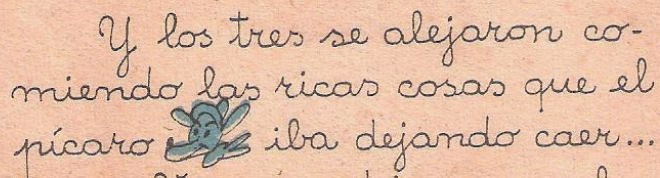 Y los tres se alejaron co-
miendo las ricas cosas que el
pícaro iba dejando caer...